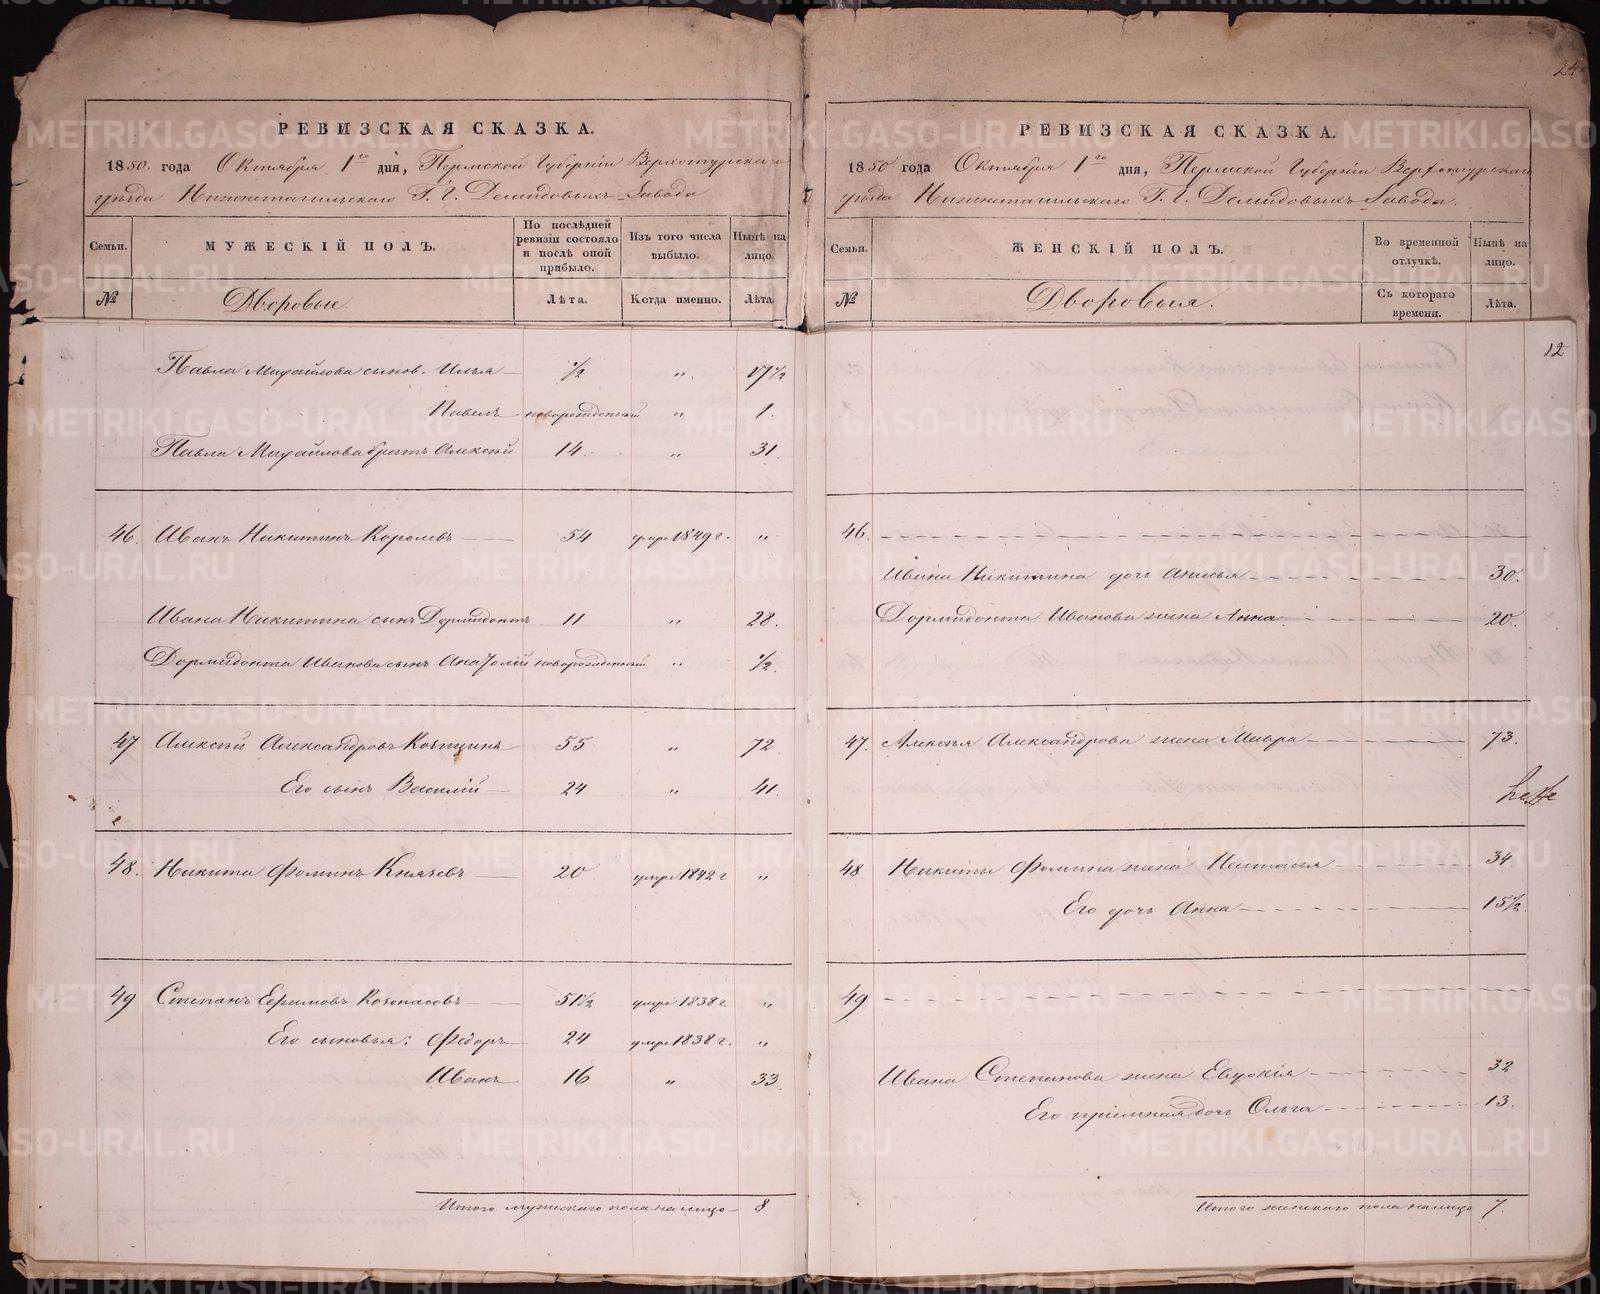 24
РЕВИЗСКАЯ СКАЗКА.
1850. года Октября 1го дня, Пермской Губерніи Верхотурскаго
уѣзда Нижнетагильскаго Г. Г. Демидовыхъ Завода
Семьи.
МУЖЕСКІЙ ПОЛЪ.
По послѣдней ревизіи состояло и послѣ оной прибыло.
Изъ того числа выбыло.
Нынѣ на лицо.
№
Дворовые.
Лѣта.
Когда именно.
Лѣта
Павла Михайлова сынов. Илья ½ " 17½
Павелъ новорожденный " 1.
Павла Михайлова братъ Алексѣй 14. " 31
46. Иванъ Никитинъ Королевъ 54 умре 1849 г. "
Ивана Никитина сынъ Дормидонтъ 11 " 28.
Дормидонта Иванова сынъ Анатолій новорожденный " ½.
47 Алексѣй Александровъ 55 " 72
Его сынъ Василій 24 " 41.
48. Никита Фоминъ Князевъ 20 умре 1842 г "
49 Степанъ Ефимовъ Козопасовъ 51½ умре 1838 г. "
Его сыновья: Федоръ 24 умре 1838 г. "
Иванъ 16 " 33.
Итого мужескаго пола на лицо 8
РЕВИЗСКАЯ СКАЗКА.
1850 года Октября 1го дня, Пермской Губерніи Верхотурскаго
уѣзда Нижнетагильскаго Г. Г. Демидовыхъ Завода.
Семьи.
ЖЕНСКІЙ ПОЛЪ.
Во временной отлучкѣ.
Нынѣ на лицо.
№
Дворовыя.
Съ котораго времени.
Лѣта.
12
46.
Ивана Никитина дочь Анисья 30.
Дормидонта Иванова жена Анна 20.
47. Алексѣя Александрова жена Мавра 73.
48 Никиты Фомина жена Настасья 34
Его дочь Анна 15½
49
Ивана Степанова жена Евдокія 32
Его пріемная дочь Ольга 13.
Итого женскаго пола налицо 7.
METRIKI.GASO-URAL.RU